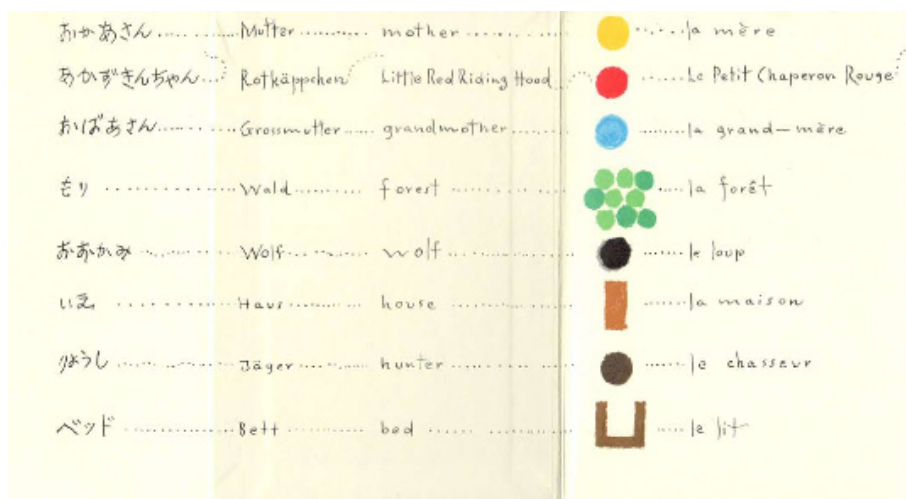 おかあさん ........ Mutter .......... mother ............ la mère
あかずきんちゃん ... Rotkäppchen ... Little Red Riding Hood ... Le Petit Chaperon Rouge
おばあさん ........ Grossmutter ..... grandmother ............ la grand-mère
もり ............ Wald ......... forest ............ la forêt
おおかみ ............ Wolf ......... wolf ............ le loup
いえ ............ Haus .......... house ............ la maison
りょうし ............ Jäger .......... hunter ............ le chasseur
ベッド ............ Bett .......... bed ............ le lit